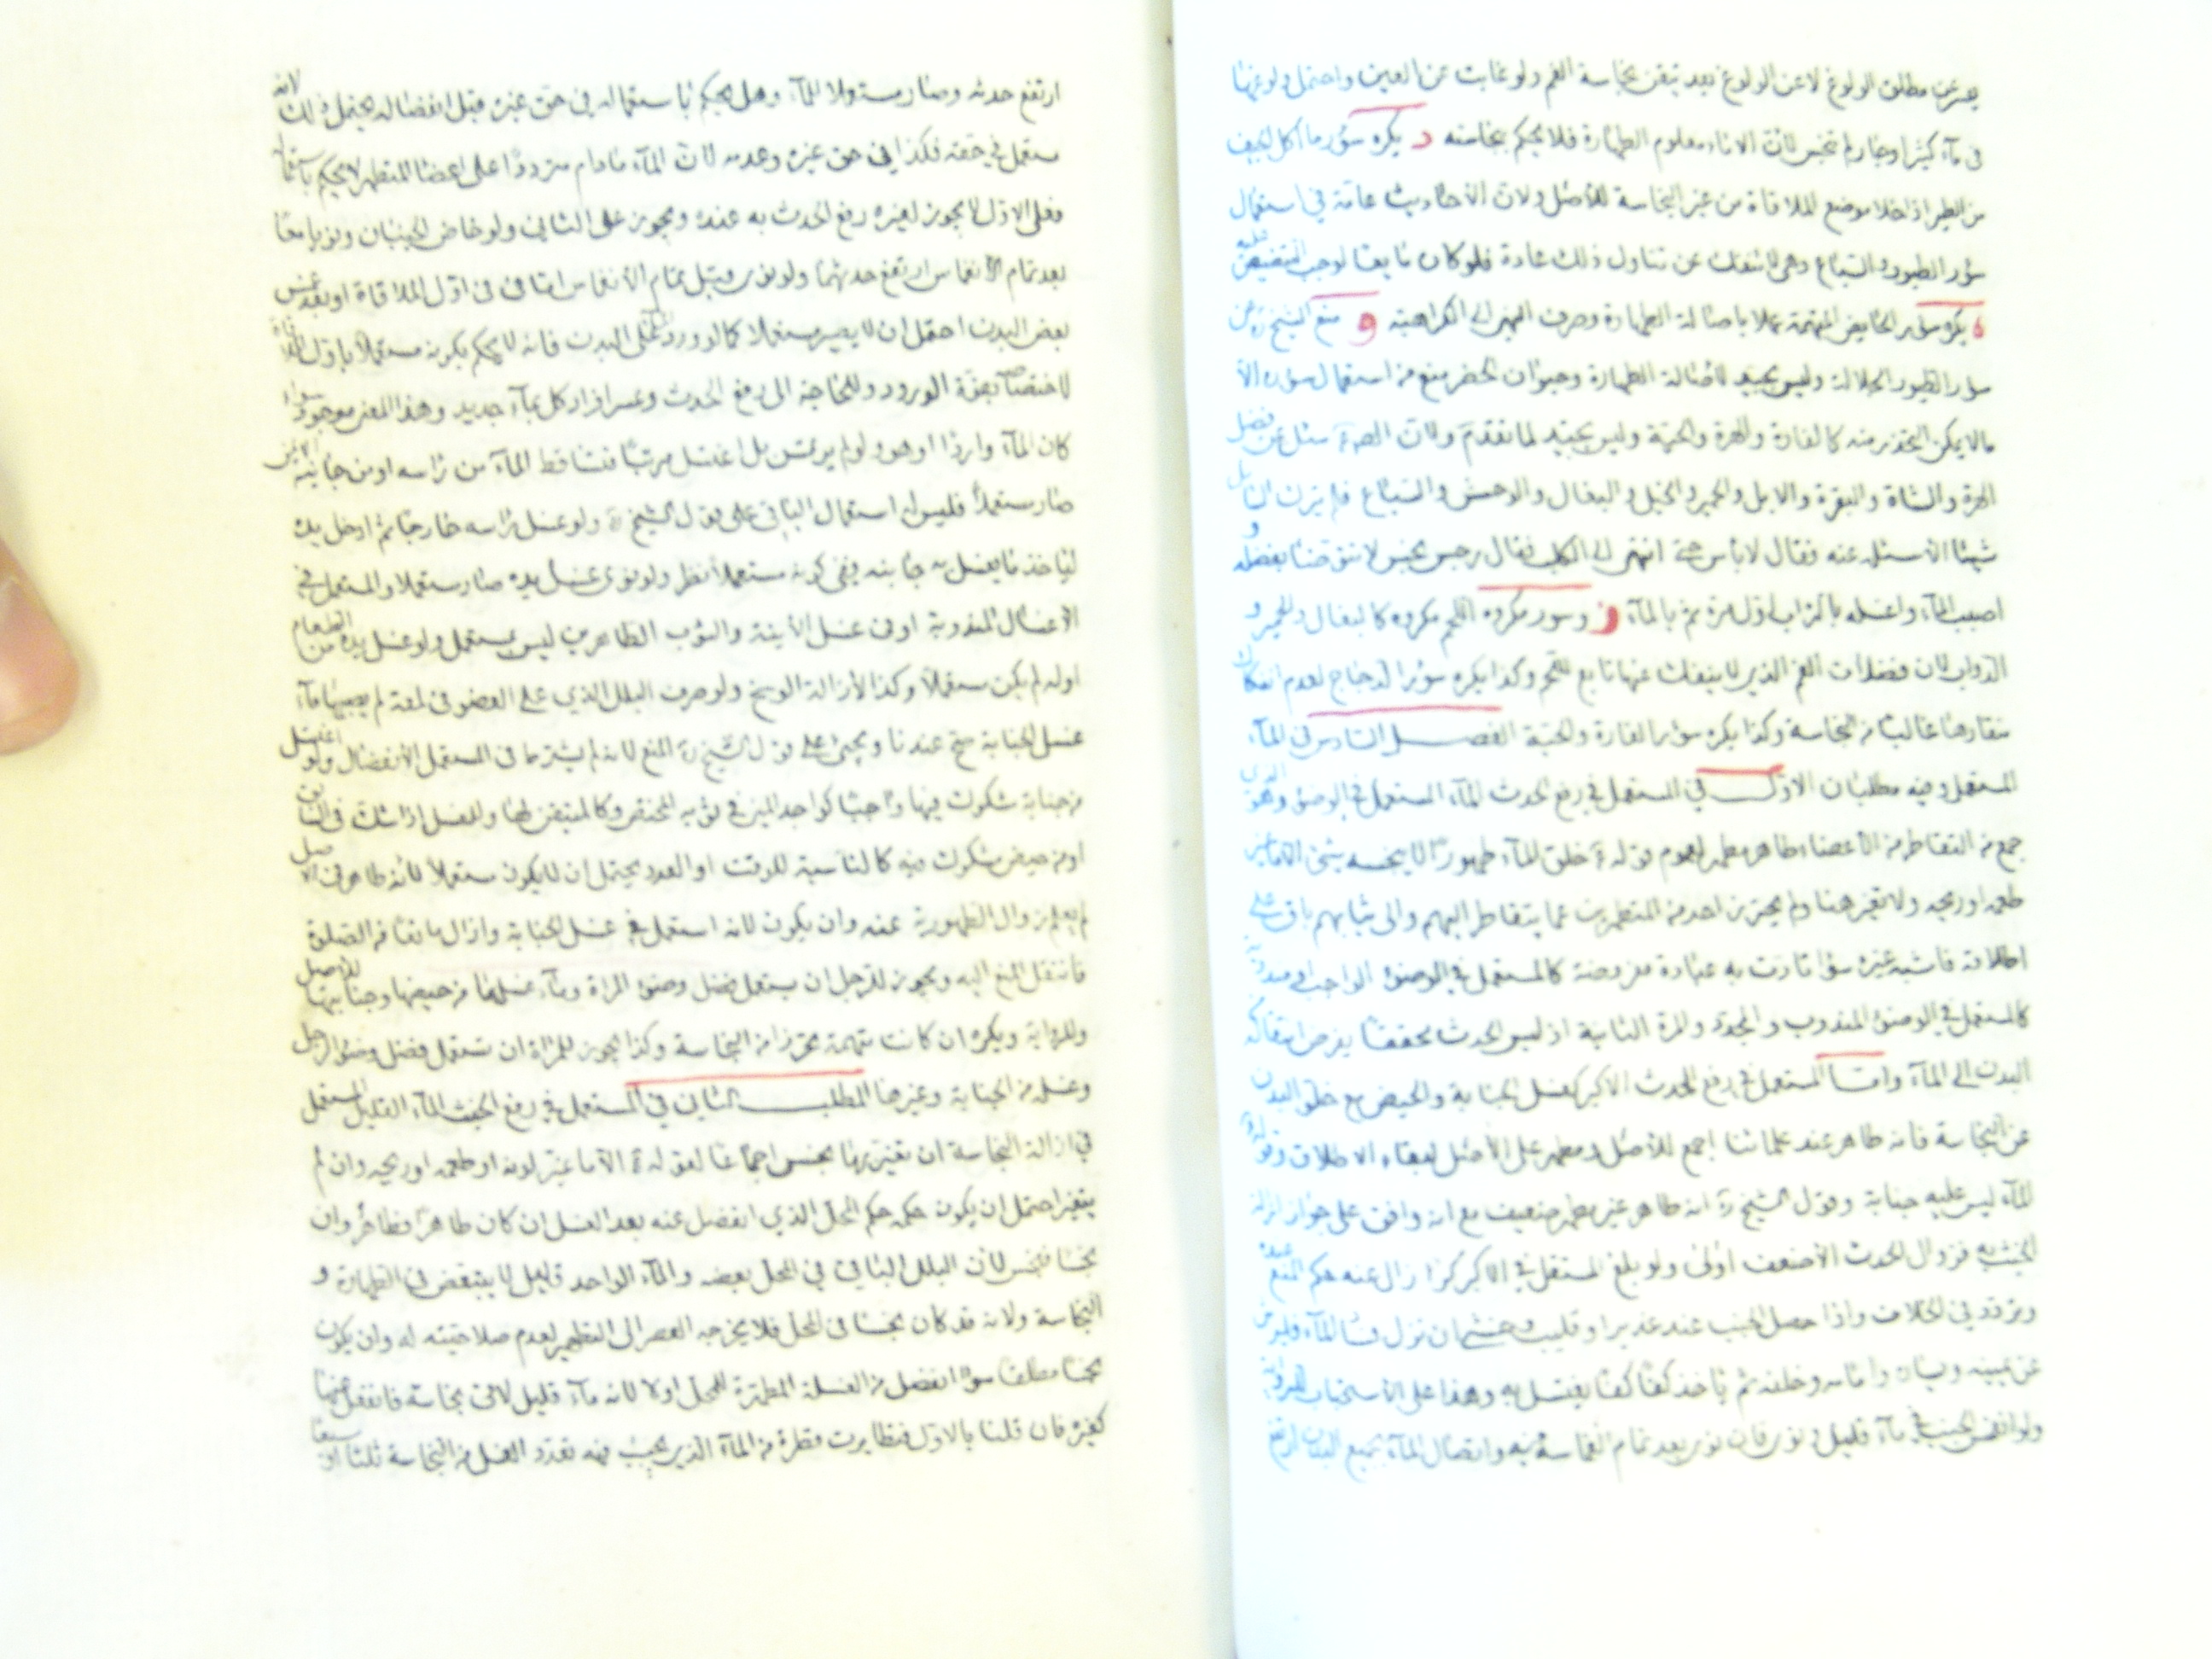 يعبر عن مطلق الولوغ لا عن الولوغ بعد تيقن نجاسة الفم ولو غابت عن العين واحتمل ولوغها
في ماء كثير او جار لم تنجس لان الاناء معلوم الطهارة فلا يحكم بنجاسته د يكره سؤر ما أكل الجيف
من الطير اذا خلا موضع الملاقاة من عين النجاسة للأصل ولان الأحاديث عامة في استعمال
سؤر الطيور والسباع وهي لا تنفك عن تناول ذلك عادة فلو كان مانعا لوجب التنصيص عليه
ه يكره سؤر الحايض المتهمة عملا باصالة الطهارة وصرف النهي الى الكراهية و منع الشيخ ره من
سؤر الطيور الجلالة وليس بجيد لأصالة الطهارة وحيوان الحضر منع من استعمال سؤره الا
مالا يمكن التحذر منه كالفارة والهرة والحية وليس بجيد لما تقدم ولان الصادق سئل عن فضل
الهرة والشاة والبقرة والابل والحمير والخيل والبغال والوحش والسباع فلم يترك السائل
شيئا الا سئله عنه فقال لا باس حتى انتهى الى الكلب فقال رجس نجس لا تتوضا بفضله و
اصبب الماء واغسله بالتراب اول مرة ثم بالماء ز وسور مكروه اللحم مكروه كالبغال والحمير و
الدواب لان فضلات الفم الذي لا ينفك عنها تابع للحم وكذا يكره سؤر الدجاج لعدم انفكاك
منقارها غالبا من النجاسة وكذا يكره سؤر الفارة والحية الفصل السادس في الماء
المستعمل وفيه مطلبان الاول في المستعمل في رفع الحدث الماء المستعمل في الوضوء وهو الذي
جمع من التقاطر من الأعضاء طاهر مطهر لعموم قوله خلق الماء طهورا لا ينجسه شئ الا ما غير
طعمه او ريحه ولا تغير هنا ولم يحترز احد من المتطهرين عما يتقاطر اليهم والى ثيابهم باق على
اطلاقه فاشبه غيره سواء تادت به عبادة مفروضة كالمستعمل في الوضوء الواجب او مندوبة
كالمستعمل في الوضوء المندوب والمجدد والمرة الثانية اذ ليس الحدث محققا يفرض انتقاله
البدن الى الماء واما المستعمل في رفع الحدث الأكبر كغسل الجنابة والحيض مع خلو البدن
عن النجاسة فانه طاهر عند علمائنا اجمع للأصل ومطهر على الأصل لبقاء الاطلاق وقوله
الماء ليس عليه جنابة وقول الشيخ ره انه طاهر غير مطهر ضعيف مع انه وافق على جواز ازالة
الخبث به فزوال الحدث الأضعف اولى ولو بلغ المستعمل في الاكبر كرا زال عنه حكم المنع عنده
وتردد في الخلاف واذا حصل الجنب عند غدير او قليب وخشي ان نزل فساد الماء فليرش
عن يمينه ويساره وامامه وخلفه ثم ياخذ كفا كفا يغتسل به وهذا على الأستحباب للرواية
ولو انغمس الجنب في ماء قليل ونوى فان نوى بعد تمام انغماسه فيه واتصال الماء بجميع البدن ارتفع
ارتفع حدثه وصار مستعملا للماء وهل يحكم باستعماله في حق غيره قبل انفصاله يحتمل ذلك لانه
مستعمل في حقه فكذا في حق غيره وعدمه لان الماء مادام مترددا على اعضاء المتطهر لا يحكم باستعماله
فعلى الاول لا يجوز لغيره رفع الحدث به عنده ويجوز على الثاني ولو خاض الجنبان ونويا معا
بعد تمام الانغماس ارتفع حدثهما ولو نوى قبل تمام الأنغماس اما في في اول الملاقاة او بعد غمس
بعض البدن احتمل ان لا يصير مستعملا كما لو ورد الماء على البدن فانه لا يحكم بكونه مستعملا باول الملاقاة
لاختصاصه بقوة الورود وللحاجة الى رفع الحدث وعسر افراد كل بماء جديد وهذا المعنى موجود سواء
كان الماء واردا او هو ولو لم يرتمس بل اغتسل مرتبا فتساقط الماء من راسه او من جانبه الأيمن
صار مستعملا فليس له استعمال الباقي على قول الشيخ ره ولو غسل راسه خارجا ثم ادخل يده
لياخذ ما يغسل به جانبه ففي كونه مستعملا نظر ولو نوى غسل يده صار مستعملا والمستعمل في
الاغسال المندوبة او في غسل الأنية والثوب الطاهرين ليس بمستعمل ولو غسل يده من الطعام
اوله لم يكن مستعملا وكذا لأزالة الوسخ ولو صرف البلل الذي على العضو في لمعة لم يصبها ماء
غسل الجنابة صح عندنا ويجئ على قول الشيخ ره المنع لانه لم يشترط في المستعمل الأنفصال ولو اغتسل
من جنابة شكوك فيها واجبا كواجد المني في ثوبه المختص وكالمتيقن لها والغسل اذا شك في السابق
او من حيض مشكوك فيه كالناسية للوقت او العدد يحتمل ان لا يكون مستعملا لأنه طاهر في الاصل
لم يعلم زوال الطهورية عنه وان يكون لانه استعمل في غسل الجنابة وازال مانعا من الصلوة
فانتقل المنع اليه ويجوز للرجل ان يستعمل فضل وضوء المراة وماء غسلها من حيضها وجنابتها للأصل
وللرواية ويكره ان كانت متهمة تحرزا من النجاسة وكذا يجوز للمراة ان تستعمل فضل وضوء الرجل
وغسله من الجنابة وغيرها المطلب الثاني في المستعمل في رفع الخبث الماء القليل المستعمل
في ازالة النجاسة ان تغير بها نجس اجماعا لقوله الا ما غير لونه او طعمه او ريحه وان لم
يتغير احتمل ان يكون حكمه حكم المحل الذي انفصل عنه بعد الغسل ان كان طاهرا فطاهر وان
نجسا فنجس لأن البلل الباقي في المحل بعضه والماء الواحد قليل لا يتبعض في الطهارة و
النجاسة ولانه قد كان نجسا في المحل فلا يخرجه العصر الى التطهير لعدم صلاحيته له وان يكون
نجسا مطلقا سواء انفصل من الغسلة المطهرة للمحل او لا لانه ماء قليل لاقى نجاسة فانفعل عنها
كغيره فان قلنا بالاول فتطايرت قطرة من الماء الذي يجب فيه تعدد الغسل من النجاسة ثلثا او سبعا